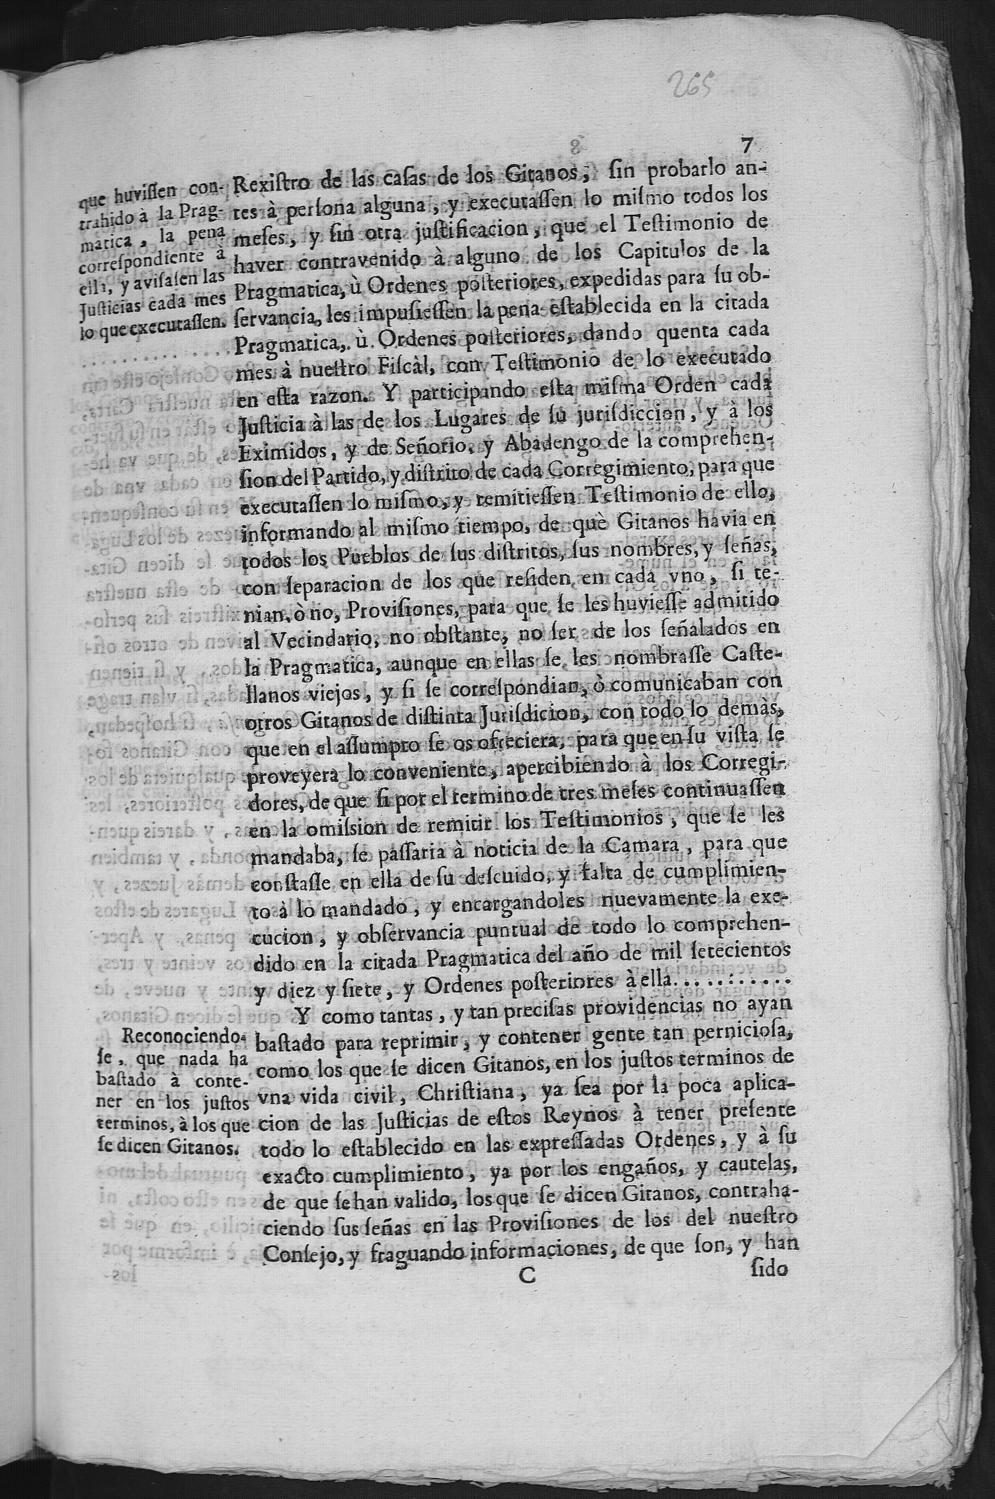 265
7
que huvissen con-
trahido à la Prag-
matica, la pena
correspondiente à
ella, y avisasen las
Justicias cada mes
lo que executassen.
Rexistro de las casas de los Gitanos, sin probarlo an-
tes à persona alguna, y executassen lo mismo todos los
meses, y sin otra justificacion, que el Testimonio de
haver contravenido à alguno de los Capitulos de la
Pragmatica, ù Ordenes posteriores, expedidas para su ob-
servancia, les impusiessen la pena establecida en la citada
Pragmatica, ù Ordenes posteriores, dando quenta cada
mes à nuestro Fiscàl, con Testimonio de lo executado
en esta razon. Y participando esta misma Orden cada
Justicia à las de los Lugares de su jurisdiccion, y à los
Eximidos, y de Señorio, y Abadengo de la comprehen-
sion del Partido, y distrito de cada Corregimiento, para que
executassen lo mismo, y remitiessen Testimonio de ello,
informando al mismo tiempo, de què Gitanos havia en
todos los Pueblos de sus distritos, sus nombres, y señas,
con separacion de los que residen en cada vno, si te-
nian, ò no, Provisiones, para que se les huviesse admitido
al Vecindario, no obstante, no ser de los señalados en
la Pragmatica, aunque en ellas se les nombrasse Caste-
llanos viejos, y si se correspondian, ò comunicaban con
otros Gitanos de distinta Jurisdicion, con todo lo demàs,
que en el assumpto se os ofreciera, para que en su vista se
proveyera lo conveniente, apercibiendo à los Corregi-
dores, de que si por el termino de tres meses continuassen
en la omision de remitir los Testimonios, que se les
mandaba, se passaria à noticia de la Camara, para que
constasse en ella de su descuido, y falta de cumplimien-
to à lo mandado, y encargandoles nuevamente la exe-
cucion, y observancia puntual de todo lo comprehen-
dido en la citada Pragmatica del año de mil setecientos
y diez y siete, y Ordenes posteriores à ella..........
Reconociendo-
se, que nada ha
bastado à conte-
ner en los justos
terminos, à los que
se dicen Gitanos.
Y como tantas, y tan precisas providencias no ayan
bastado para reprimir, y contener gente tan perniciosa,
como los que se dicen Gitanos, en los justos terminos de
vna vida civil, Christiana, ya sea por la poca aplica-
cion de las Justicias de estos Reynos à tener presente
todo lo establecido en las expressadas Ordenes, y à su
exacto cumplimiento, ya por los engaños, y cautelas,
de que se han valido, los que se dicen Gitanos, contraha-
ciendo sus señas en las Provisiones de los del nuestro
Consejo, y fraguando informaciones, de que son, y han
C
sido